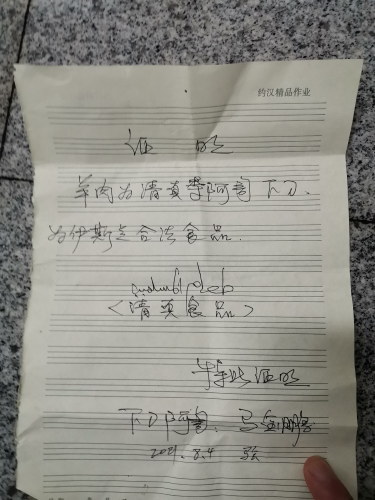 约汉精品作业
证明
羊肉为清真寺阿訇下刀、
为伊斯兰合法食品.
<清真食品>
特此证明
下刀阿訇: 马
2021.8.4